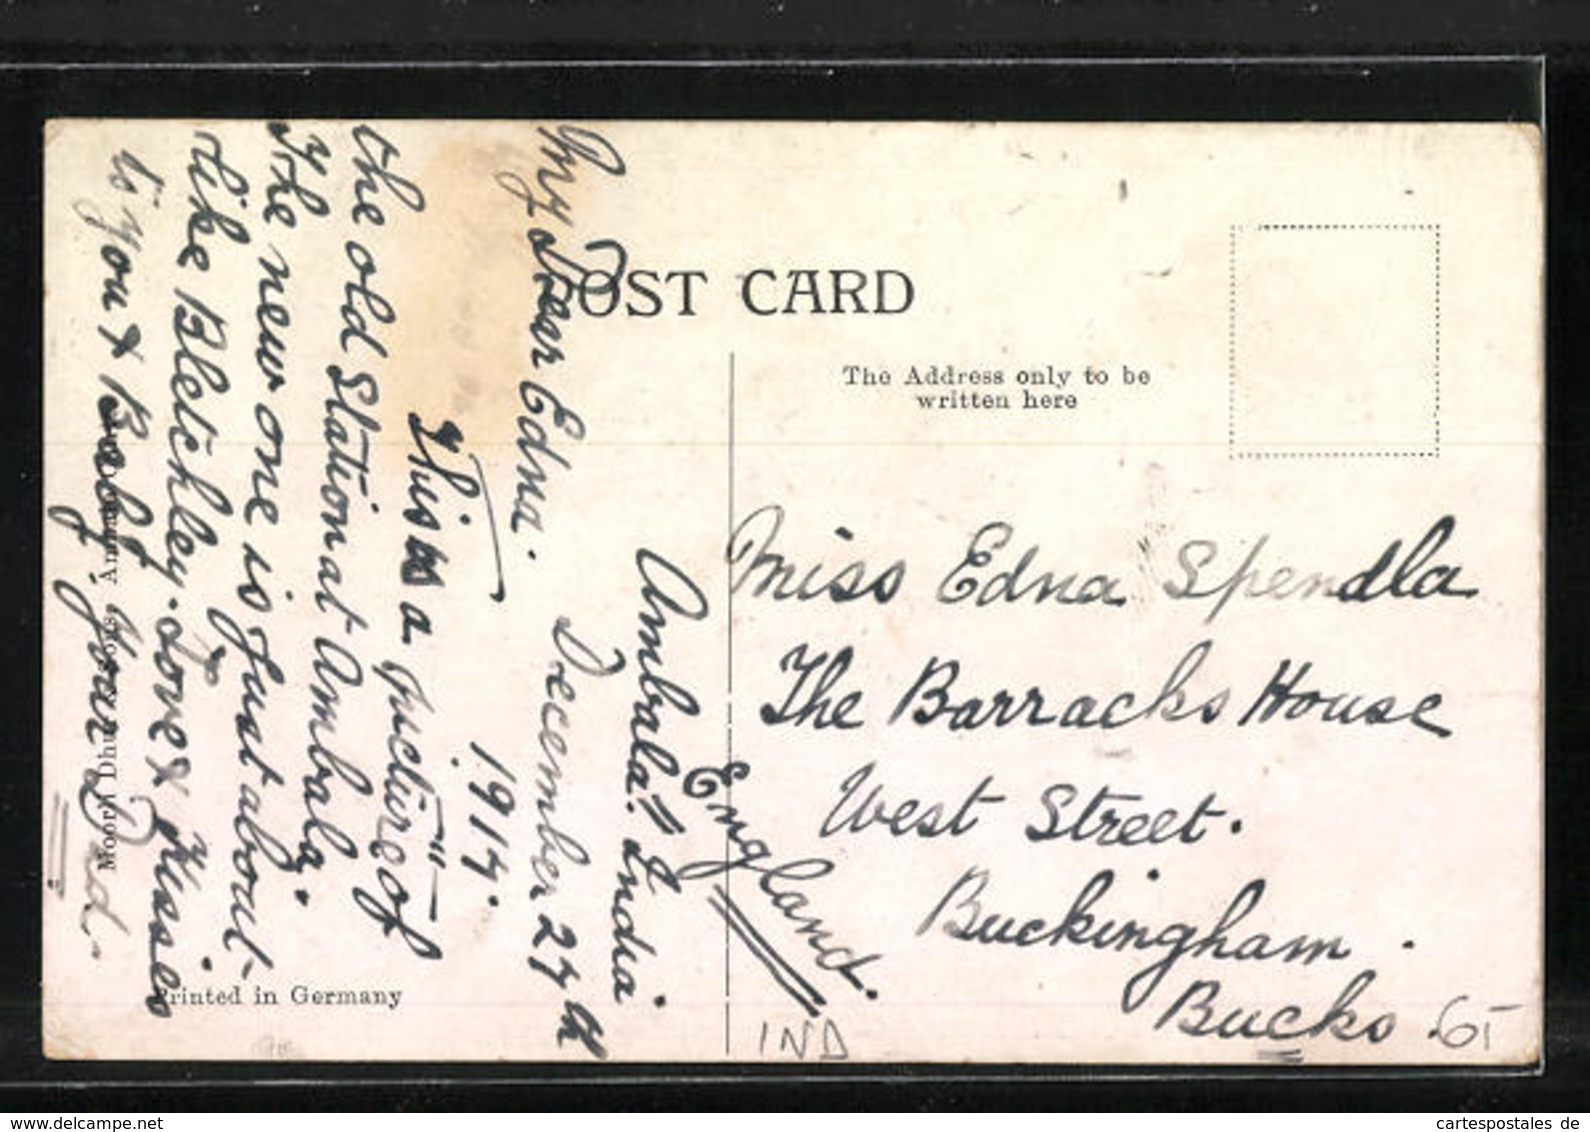 POST CARD
The Address only to be
written here
Ambala. India
December 27th
1914.
My Dear Edna.
This is a picture of
the old Station at Ambala.
The new one is just about
like Bletchley. Love & Kisses
to you & Baby
Your Dad.
Miss Edna Spendla
The Barracks House
West Street.
Buckingham.
Bucks.
England.
Printed in Germany
IND
65
www.delcampe.net
cartespostales de